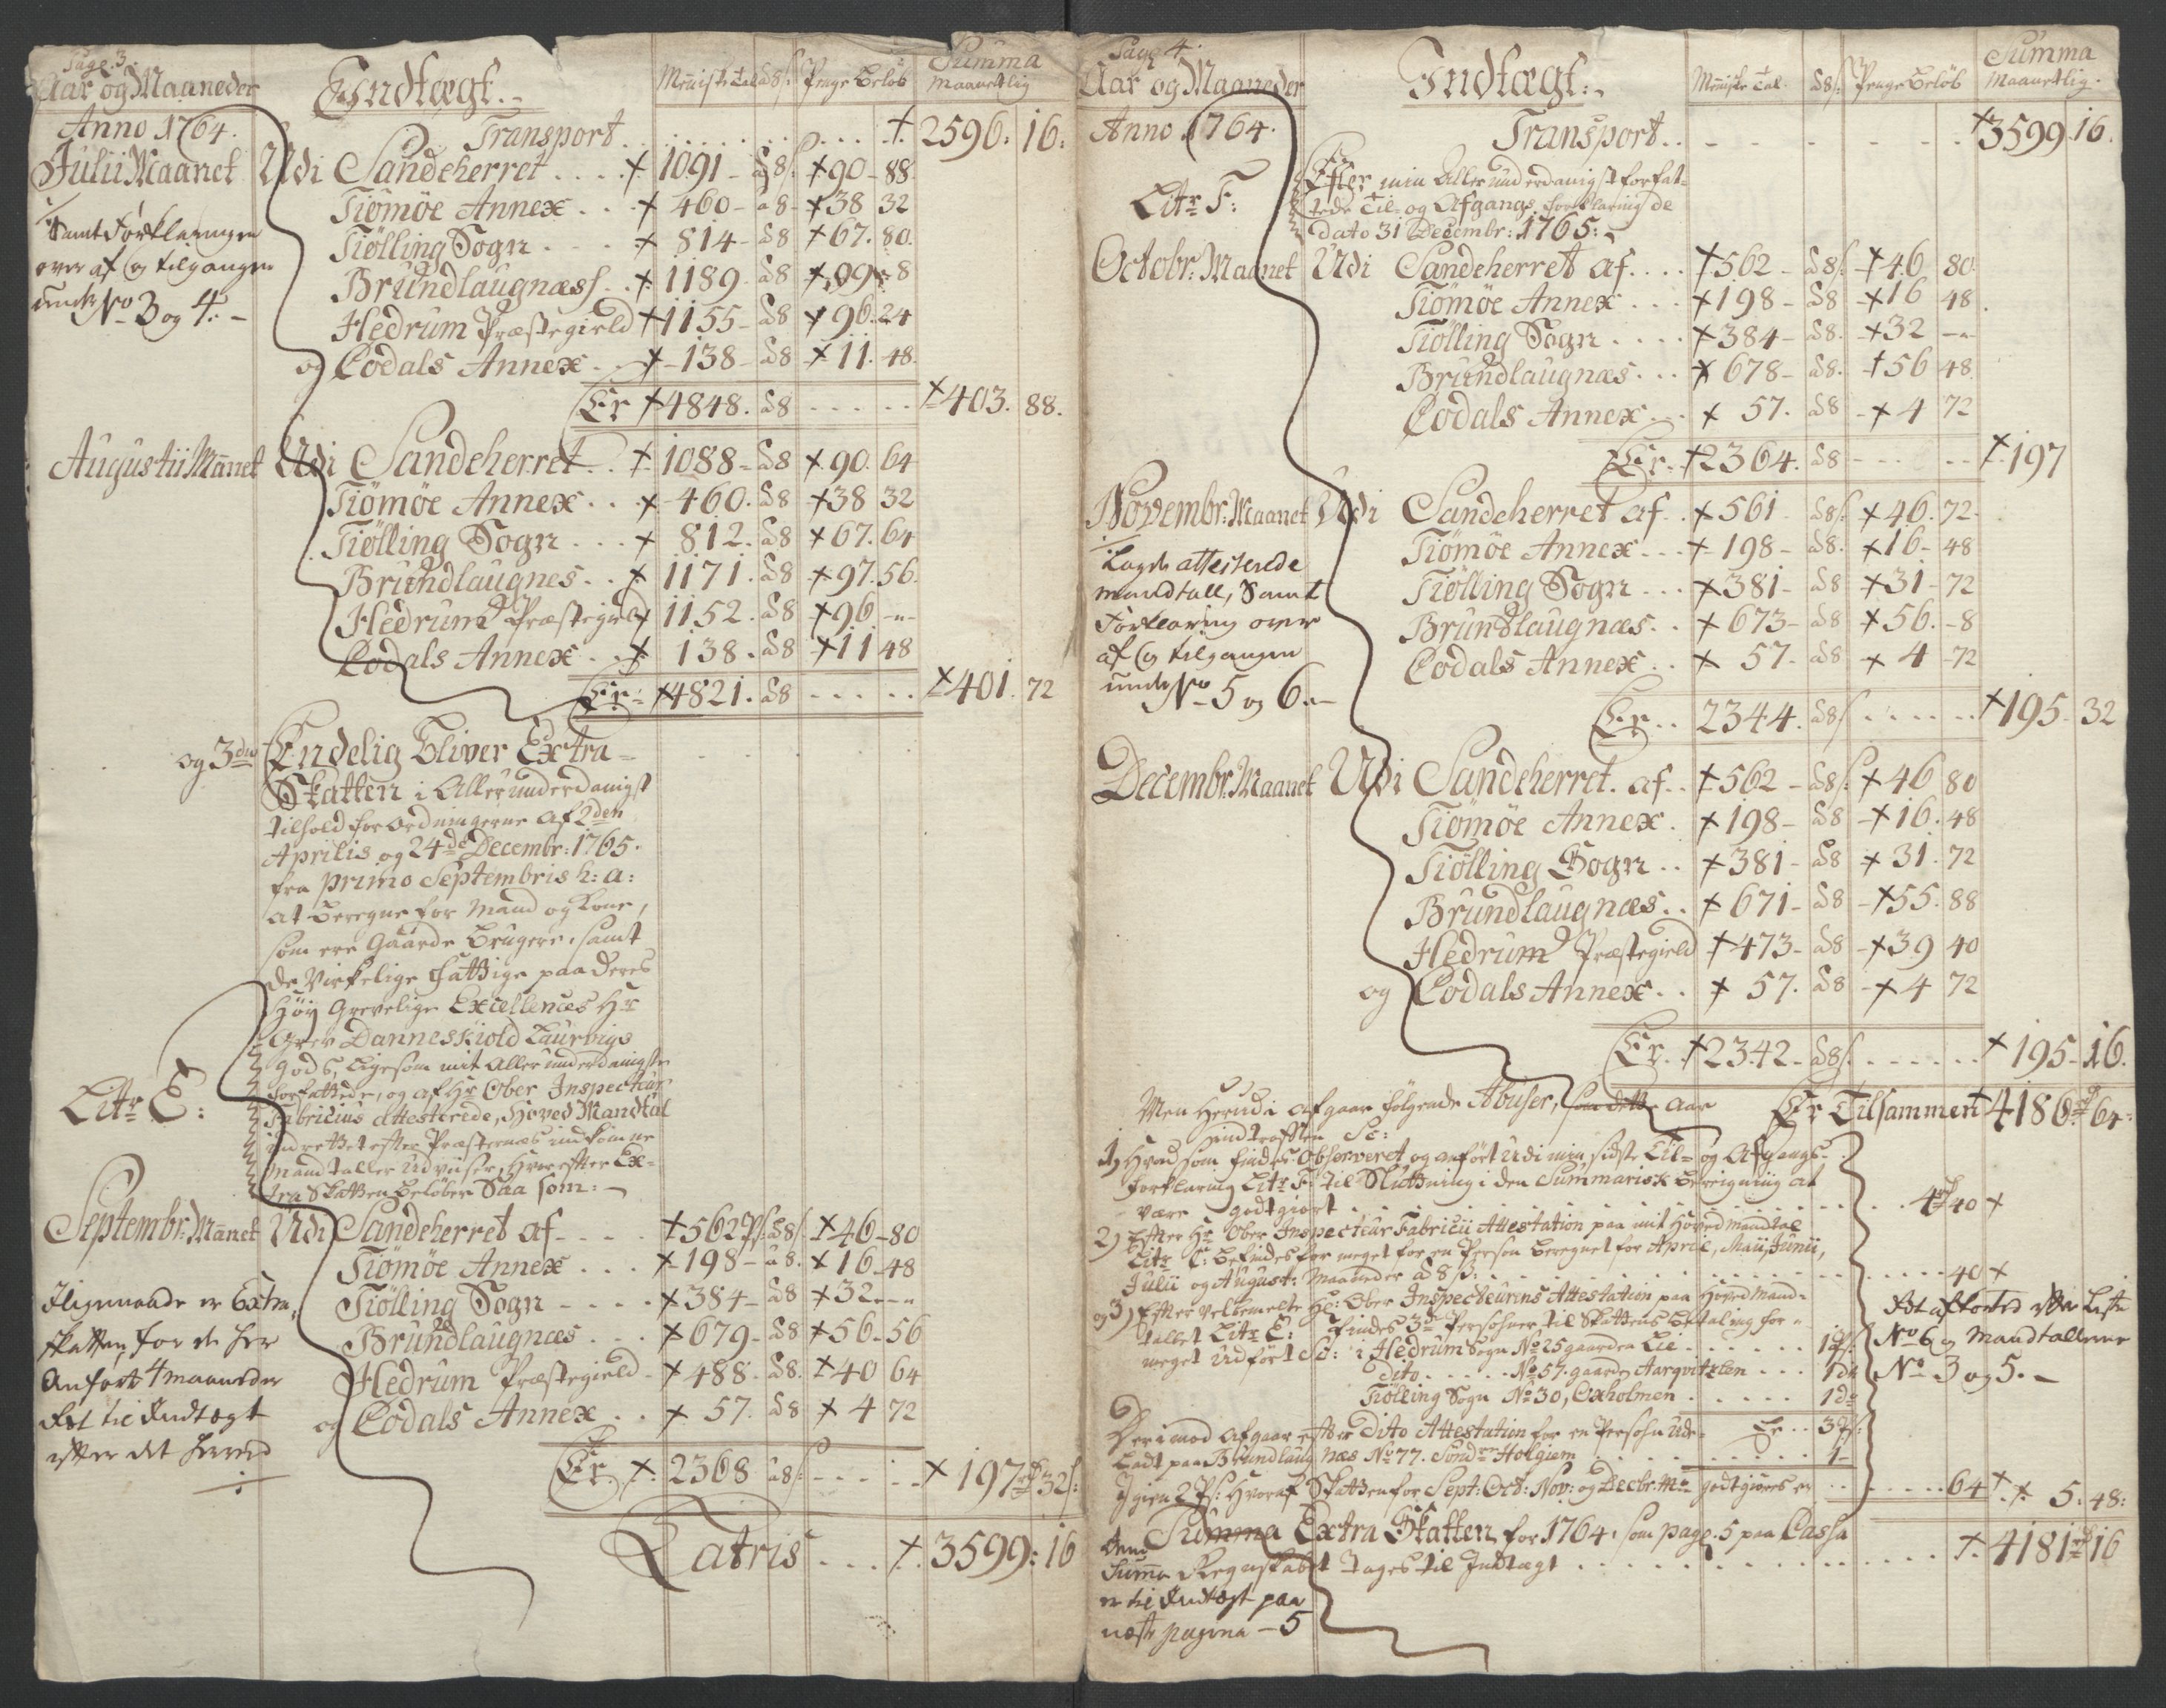 Page. 3.
Aar og Maaneder Indtægt. Menniske Tal à 8 s: Penge Beløb Summa maanetlig
Anno 1764. Transport . . . 2596: 16:
Julii Maanet Udi Sandeherret . . . 1091 - à 8 s: 90 - 88.
Tiømøe Annex . . 460 - à 8 - 38 32
Tiølling Sogn . . . 814 - à 8 67. 80.
Brundlaugnæss . . 1189 à 8 99 - 8
Hedrum Præstegield 1155 - à 8 96. 24
og Codals Annex . . 138 - à 8 11. 48.
Er 4848. à 8 . . . 403. 88.
Samt Forklaringen
over af og tilgangen
under No 3 og 4. -
Augustii Maanet Udi Sandeherret . . 1088 - à 8 90. 64
Tiømøe Annex . . . 460. à 8 38 32
Tiølling Sogn . . . 812. à 8 67. 64
Brundlaugnes . . 1171. à 8 97. 56.
Hedrum Præstegield 1152. à 8 96 -"-
Codals Annex . . 138. à 8 11 48
Er: 4821. à 8 . . . . 401. 72
og 3die Endelig bliver Extra-
Skatten i Allerunderdanigst
tilhold forordningerne af 2den
Aprilis og 24de Decembr: 1765.
fra primo Septembris h: a:
at beregne for Mand og Kone,
som ere Gaarde brugere, samt
de Virkelige Fattige paa Deres
Høy Grevelige Excellences Hr
Grev Danneskiold Laurvigs
Gods, ligesom mit Allerunderdanigste
forfattede, og af Hr Ober Inspecteur
Litr E: Fabricius attesterede, Hoved Mandtal
indrettet efter Præsternes indkomne
Mandtaller Udviiser, Hvorefter Ex-
tra Skatten beløber Saa som: -
Septembr: Maanet Udi Sandeherret af . . . 562 Ps: à 8 s. 46 - 80
Tiømøe Annex . . . 198 - à 8. 16 - 48
Tiølling Sogn . . . . 384 - à 8 32 - "
Brundlaugnæs . . . 679 - à 8 56 - 56
Hedrum Præstegield - 488 - à 8. 40 64
og Codals Annex . . 57. à 8 4 72
Er 2368 à 8 s: . . . . 197 rd 32 s:
Ligemaade er Extra-
skatten for de her
Anførte 4 maaneder
ført til Indtægt
efter det herved
Latris . . . 3599: 16
Page 4.
Aar og Maaneder Indtægt: Menniske Tal. à 8 s: Penge Beløb Summa Maanetlig.
Anno 1764. Transport . . - - - - - 3599. 16.
Litr F: Efter min Allerunderdanigst forfat-
tede Til- og Afgangs forklaring de
dato 31 Decembr: 1765: -
Octobr: Maanet Udi Sandeherret af . . . . 562 - à 8 s: 46 80
Tiømøe Annex . . . 198 - à 8 16 48.
Tiølling Sogn . . . . 384 - à 8. 32 -"-
Brundlaugnæs . . . 678 - à 8. 56 48.
Codals Annex . . . 57. à 8 4 72
Er. 2364. à 8 - - - - - 197
Novembr: Maanet Udi Sandeherret af . . 561 à 8 s: 46. 72.
Tiømøe Annex . . . 198 - à 8. 16 - 48
Tiølling Sogn . . . 381 - à 8 31 - 72
Brundlaugnæs . . 673 - à 8 56. - 8
Codals Annex . . 57 - à 8 4 - 72
Er . . 2344. à 8 s . . . . 195 - 32
attesterede
mandtall, Samt
Forklaring over
af og tilgangen
under No 5 og 6. -
Decembr: Maanet Udi Sandeherret. af . . 562 - à 8 s: 46 80
Tiømøe Annex . 198 - à 8 16. 48
Tiølling Sogn . . 381 - à 8 31. 72
Brundlaugnæs . . 671 - à 8 55. 88
Hedrum Præstegield 473 - à 8 39 40
og Codals Annex . . 57. à 8 4 72
Er. 2342 - à 8 s. . . . . . 195 - 16.
Men herudi afgaar følgende Abuser, som dette Aar Er Tilsammen 4186 rd 64:
indtroffen Sc:
1) Hvad som findes Observeret og anført udi min sidste Til- og Afgangs-
forklaring Litr F: til Sluttning i den Summarisk Beregning at
være godtgiort . . . . . . . 4 rd 40
2) Efter Hr Ober Inspecteur Fabricii Attestation paa mit Hoved mandtal
Litr C: befindes for meget for en Person beregnet for April, Maii, Junii,
Julii og August: Maaneder à 8 s: . . . . . . 40
og 3) Efter velbemelte Hr: Ober Inspecteurens Attestation paa Hoved Mand-
tallet Litr E: findes 3de Persohner til Skattens betaling for-
meget udført Sc: i Hedrum Sogn No 25 gaarden Lie . . . . . 1 Ps:
Dito . . . . . No 57. gaarden Aarqvitzlen . . . 1 do
Tiølling Sogn No 30, Oxholmen . . . . . 1 do
Er . . 3 Ps:
Derimod afgaar efter Dito Attestation for en Persohn ude-
ladt paa Brundlaugnæs No 77. Søndre Holgiem . . . . . . . 1 -
Igien 2 Ps: Hvoraf Skatten for Sept: Oct: Nov: og Decbr: Mr. godtgiøres er . . . . . . 64 5. 48:
Er afkortet efter Liste
No 6 og Mandtallerne
No 3 og 5. -
Summa Extra Skatten for 1764, som page. 5 paa Cassa
Regnskabet tages til Indtægt . . . . . . . . 4181 rd 16
Denne
Summa
er til Indtægt paa
næste pagina - 5